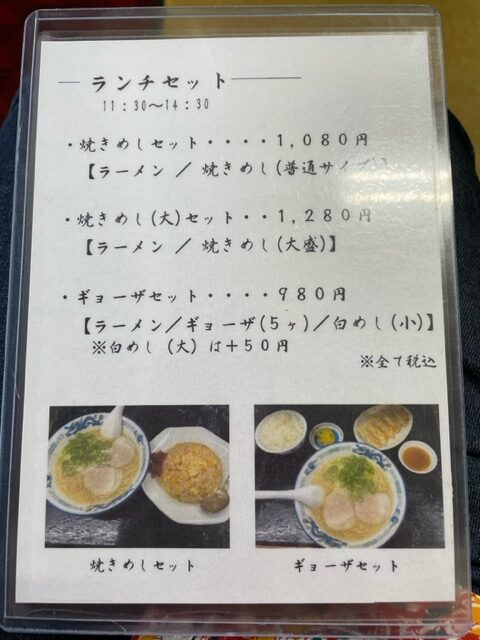 ランチセット
11：30〜14：30
・焼きめしセット・・・・1,080円
【ラーメン ／ 焼きめし(普通サイズ)】
・焼きめし(大)セット・・1,280円
【ラーメン ／ 焼きめし(大盛)】
・ギョーザセット・・・・980円
【ラーメン／ギョーザ(5ヶ)／白めし(小)】
※白めし (大) は＋50円
※全て税込
焼きめしセット
ギョーザセット